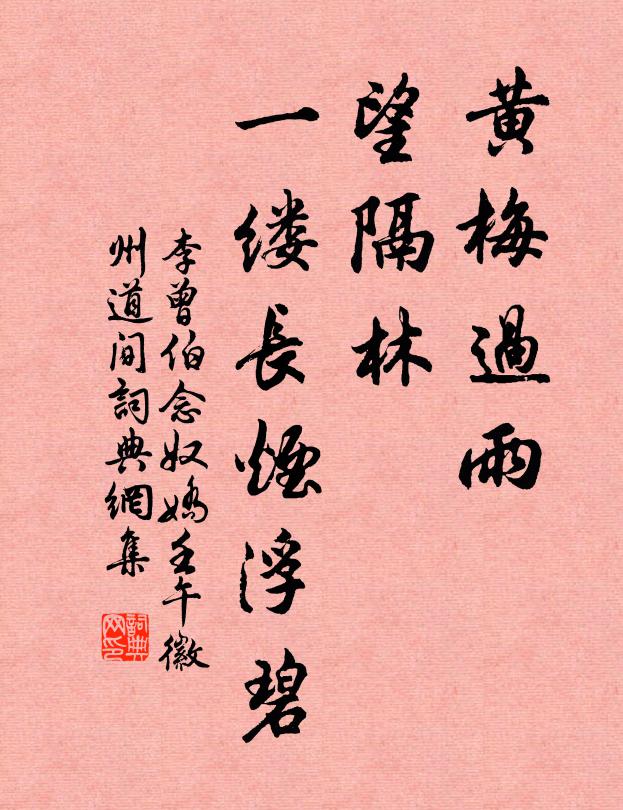 黄梅過雨
望隔林
一缕長煙浮碧
李曾伯念奴嬌壬午徽
州道间詞典網集
詞典
网印